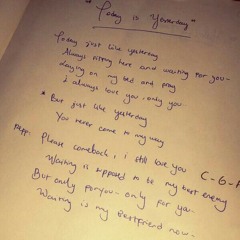 "Today is Yesterday"
Today just like yesterday
Always sitting here and waiting for you
Laying on my bed and pray
I always love you, only you
* But just like yesterday
You never come to my way
Reff: Please comeback, I still love you C-G-A
Waiting is supposed to be my best enemy
But only for you - only for you
Waiting is my bestfriend now -